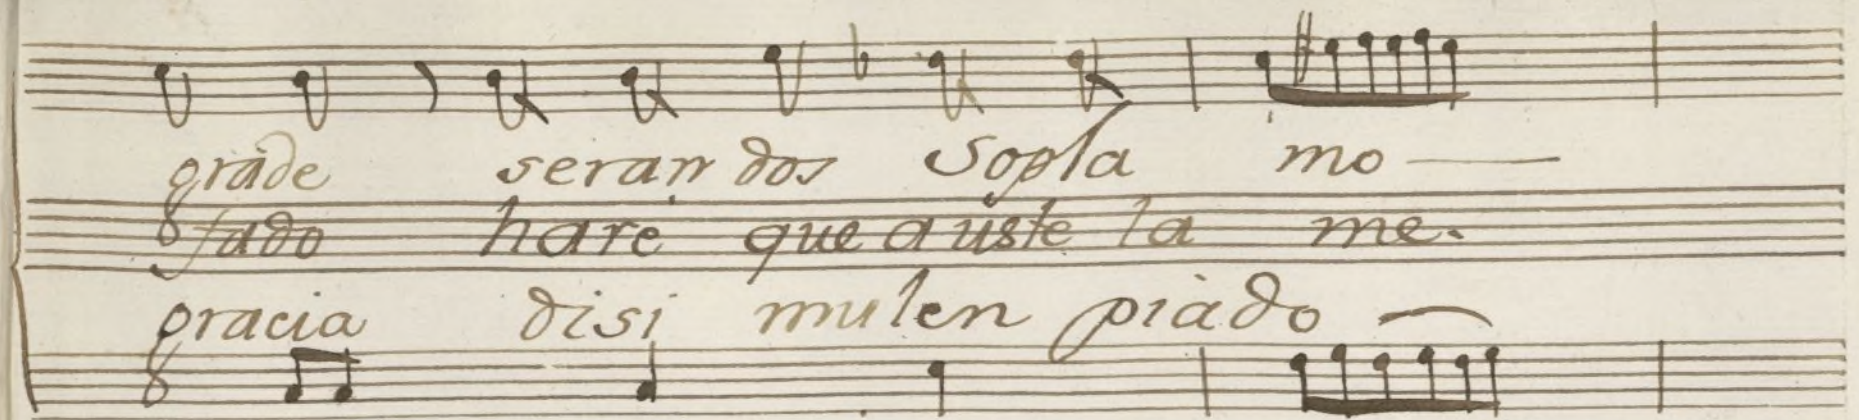 grade seran dos Sopla mo
fado haré que a uste la me.
gracia disi mulen piado